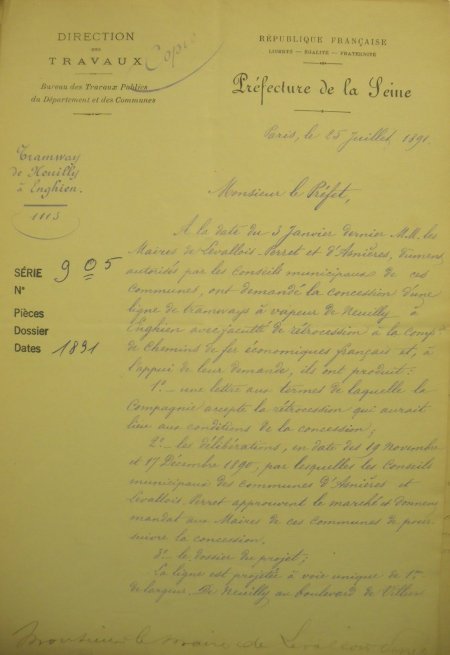 DIRECTION
DES
TRAVAUX
Bureau des Travaux Publics
du Département et des Communes
Copie
RÉPUBLIQUE FRANÇAISE
LIBERTÉ – ÉGALITÉ – FRATERNITÉ
Préfecture de la Seine
Paris, le 25 Juillet 1891.
Tramway
de Neuilly
à Enghien.
1113
SÉRIE 905
N°
Pièces
Dossier
Dates 1891
Monsieur le Préfet,
A la date du 3 Janvier dernier M.M. les
Maires de Levallois-Perret et d'Asnières, dûment
autorisés par les Conseils municipaux de ces
communes, ont demandé la concession d'une
ligne de tramways à vapeur de Neuilly à
Enghien avec faculté de rétrocession à la Comp.
de Chemins de fer économiques français et, à
l'appui de leur demande, ils ont produit :
1° – une lettre aux termes de laquelle la
Compagnie accepte la rétrocession qui aurait
lieu aux conditions de la concession ;
2° – les délibérations, en date des 19 Novembre
et 17 Décembre 1890, par lesquelles les Conseils
municipaux des communes d'Asnières et
Levallois-Perret approuvent le marché et donnent
mandat aux Maires de ces communes de pour-
suivre la concession.
3° – le dossier du projet ;
La ligne est projetée à voie unique de 1m
de largeur. De Neuilly, au boulevard de Villiers
Monsieur le Maire de Levallois-Perret